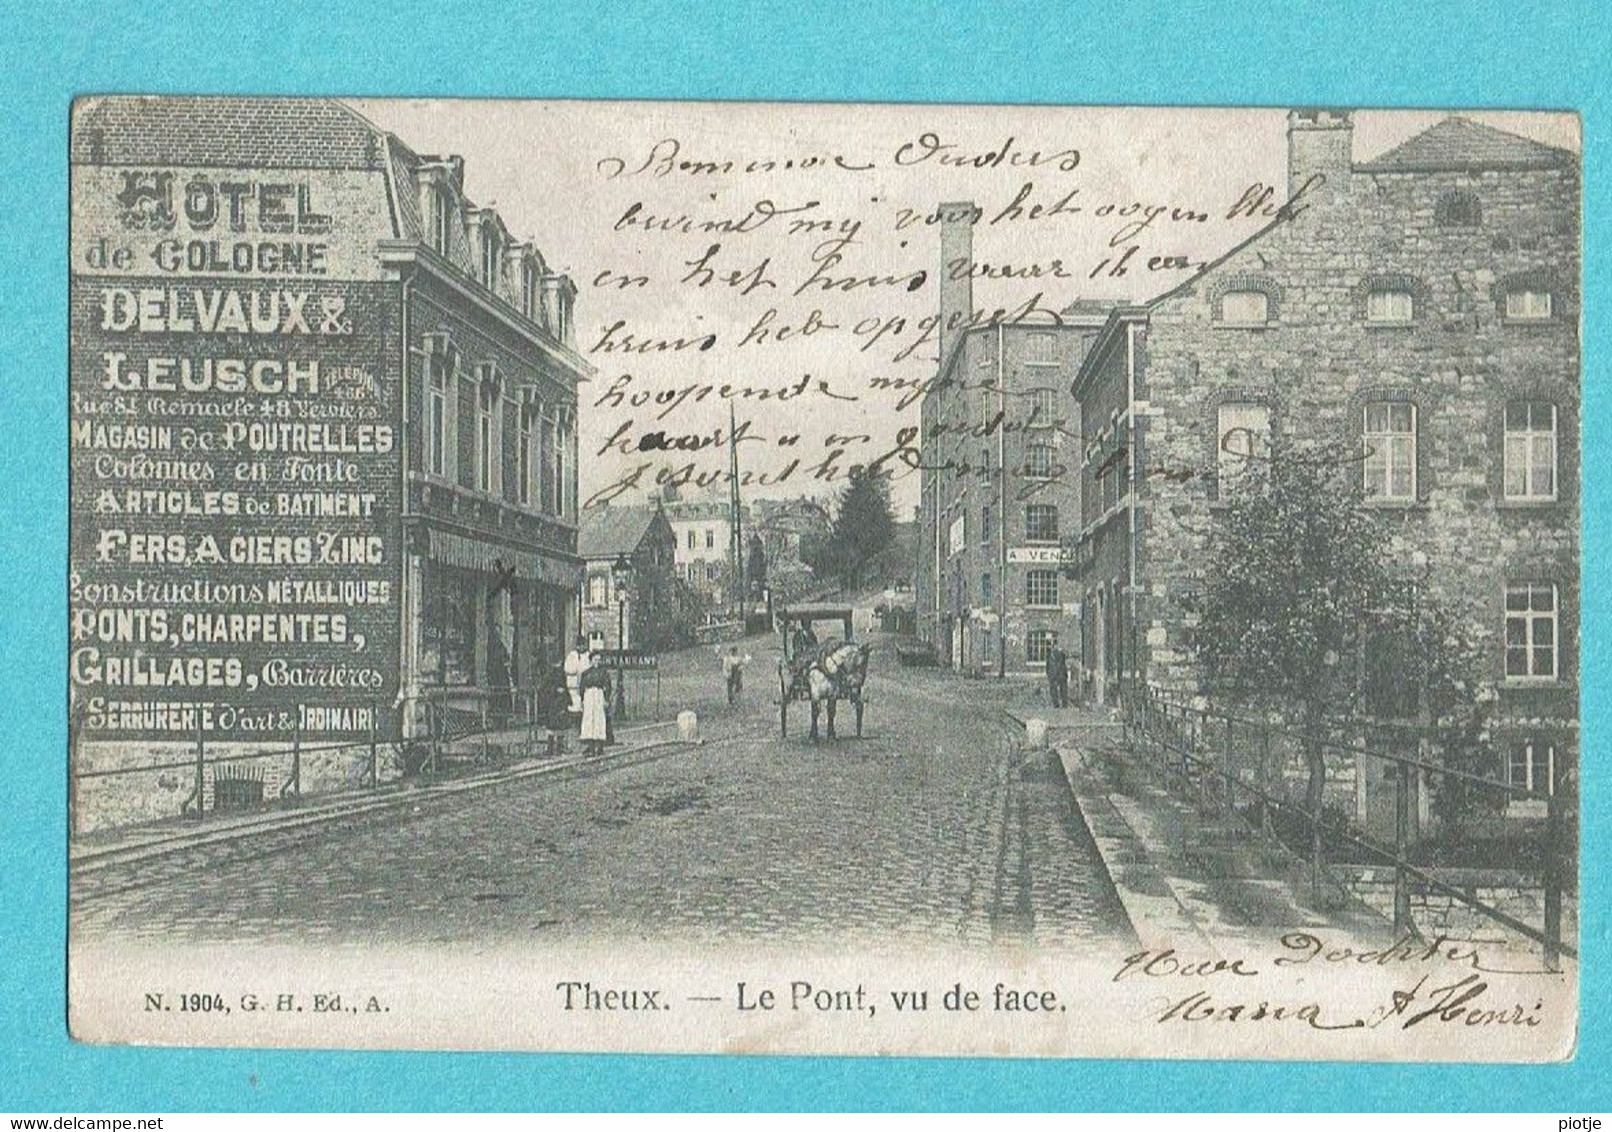 HÔTEL
de COLOGNE
DELVAUX &
LEUSCH TÉLÉPHONE
Rue St Remacle 48 Verviers
MAGASIN de POUTRELLES
Colonnes en Fonte
ARTICLES de BATIMENT
FERS, ACIERS ZINC
Constructions MÉTALLIQUES
PONTS, CHARPENTES,
GRILLAGES, Barrières
SERRURERIE d'art & ORDINAIRE
Beminde Ouders
bevind mij voor het oogenblik
en het huis waar ik een
kruis heb op gezet
hoopende mijne
kaart u in goede
gesontheid mag
A VENDRE
RESTAURANT
Uwe Dochter
Maria & Henri
N. 1904, G. H. Ed., A.
Theux. — Le Pont, vu de face.
delcampe.net
piotje